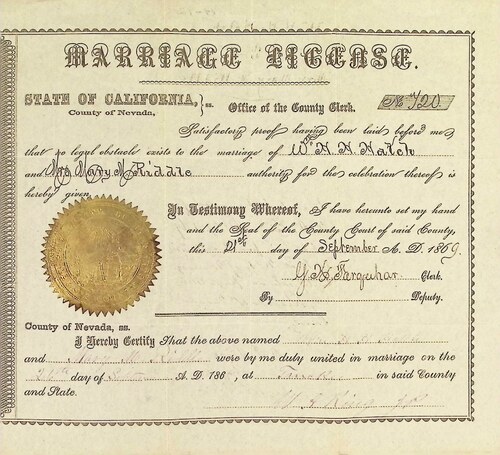 MARRIAGE LICENSE.
STATE OF CALIFORNIA, } ss.
County of Nevada,
Office of the County Clerk.
No. 720
Satisfactory proof having been laid before me
that no legal obstacle exists to the marriage of Wm H. H. Hatch
and Mrs Mary M Riddle authority for the celebration thereof is
hereby given
In Testimony Whereof, I have hereunto set my hand
and the Seal of the County Court of said County,
this 21st day of September A. D. 1869.
G. K. Farquhar Clerk.
By Deputy.
County of Nevada, ss.
I Hereby Certify That the above named
and were by me duly united in marriage on the
day of A. D. 186 , at in said County
and State.